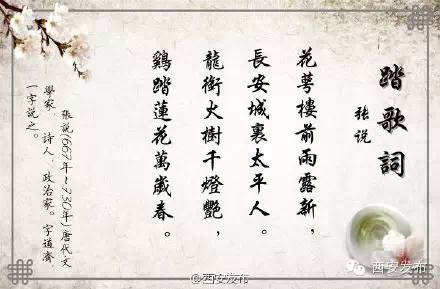 踏歌詞
张说
花萼樓前雨露新，
長安城裏太平人。
龍銜火樹千燈艷，
鷄踏蓮花萬歲春。
張說(667年~730年)唐代文
學家，詩人，政治家。字道濟
一字說之。
西安发布
@西安发布